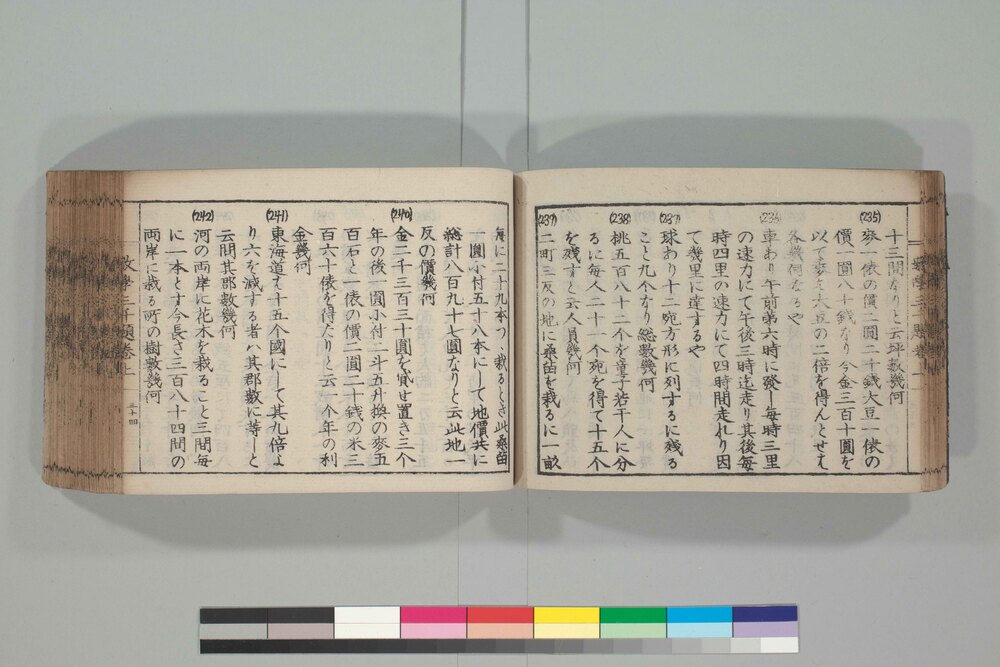 十三間なりと云坪數幾何
(235)
麥一俵の價二圓二十錢大豆一俵の
價一圓八十錢なり今金三百十圓を
以て麥を大豆の二倍を得んとせば
各幾何なるや
(236)
車あり午前第六時に發し每時三里
の速力にて午後三時迄走り其後每
時四里の速力にて四時間走れり因
て幾里に達するや
(237)
球あり十二宛方形に列するに殘る
こと九个なり総數幾何
(238)
桃五百八十二个を童子若干人に分
るに每人二十一个宛を得て十五个
を殘すと云人員幾何
(237)
二町三反の地に桑苗を栽るに一畝
每に二十九本つゝ栽るとき此桑苗
一圓小付五十八本にして地價共に
総計八百九十七圓なりと云此地一
反の價幾何
(240)
金二千三百三十圓を貸せ置き三个
年の後一圓小付二斗五升換の麥五
百石と一俵の價二圓二十錢の米三
百六十俵を得たりと云一个年の利
金幾何
(241)
東海道は十五个國にして其九倍よ
り六を減する者ハ其郡數に等しと
云問其郡數幾何
(242)
河の両岸に花木を栽ること三間每
に一本とす今長さ三百八十四間の
両岸に栽る所の樹數幾何
數學三千題卷上
三十四